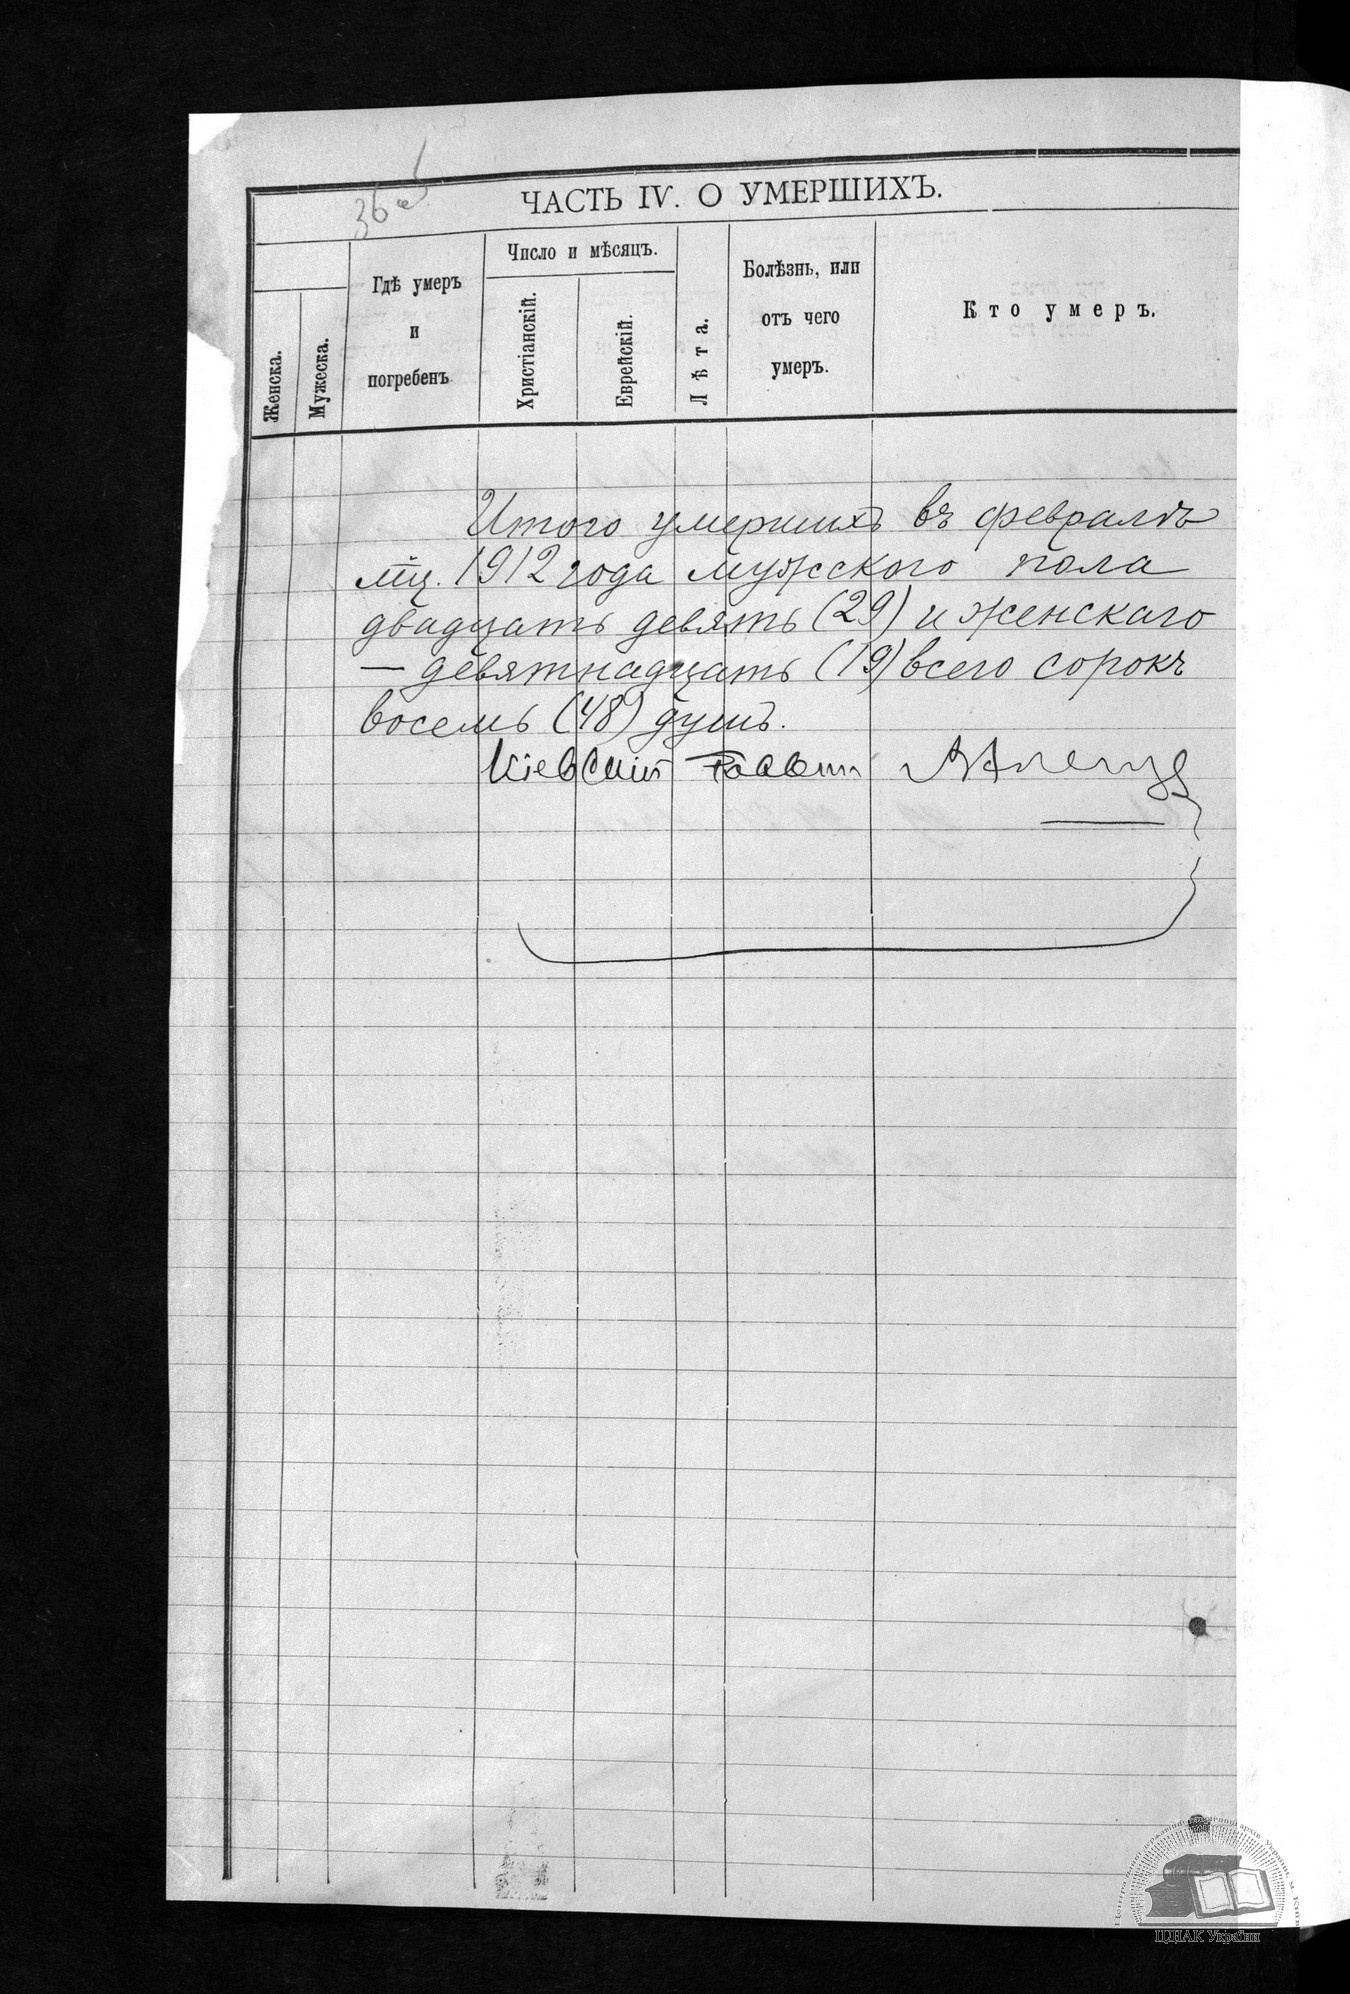 36 об
ЧАСТЬ IV. О УМЕРШИХЪ.
Женска.
Мужеска.
Гдѣ умеръ
и
погребенъ
Число и мѣсяцъ.
Христіанскій.
Еврейскій.
Лѣта.
Болѣзнь, или
отъ чего
умеръ.
Кто умеръ.
Итого умершихъ въ февралѣ
мц. 1912 года мужского пола
двадцать девять (29) и женскаго
— девятнадцать (19) всего сорокъ
восемь (48) душъ.
Кіевскій Раввин
ЦДІАК України